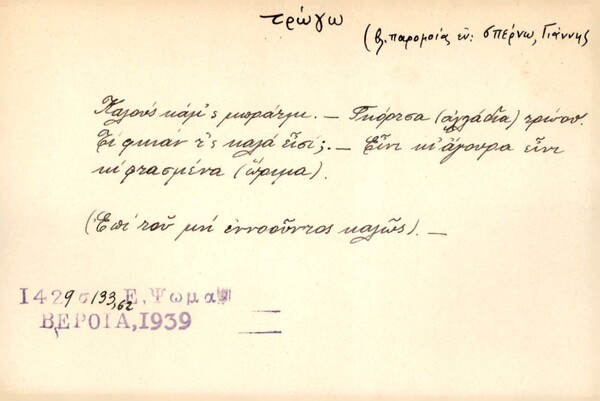 τρώγω
(βλ. παροιμίας ἐν: σπέρνω, Γιάννης
Καλους κάμ'ς μπράτμι. — Γκόρτσα (ἀχλάδια) τρώγου.
Τί φκιάν τ'ς καλά εἶσί; — Εἶνι κι ἄγουρα εἶνι
κι φτασμένα (ὥριμα).
(Ἐπί τοῦ μή ἐννοοῦντος καλῶς). —
1429 σ/93,62 Ε. Ψωμα
ΒΕΡΟΙΑ, 1939